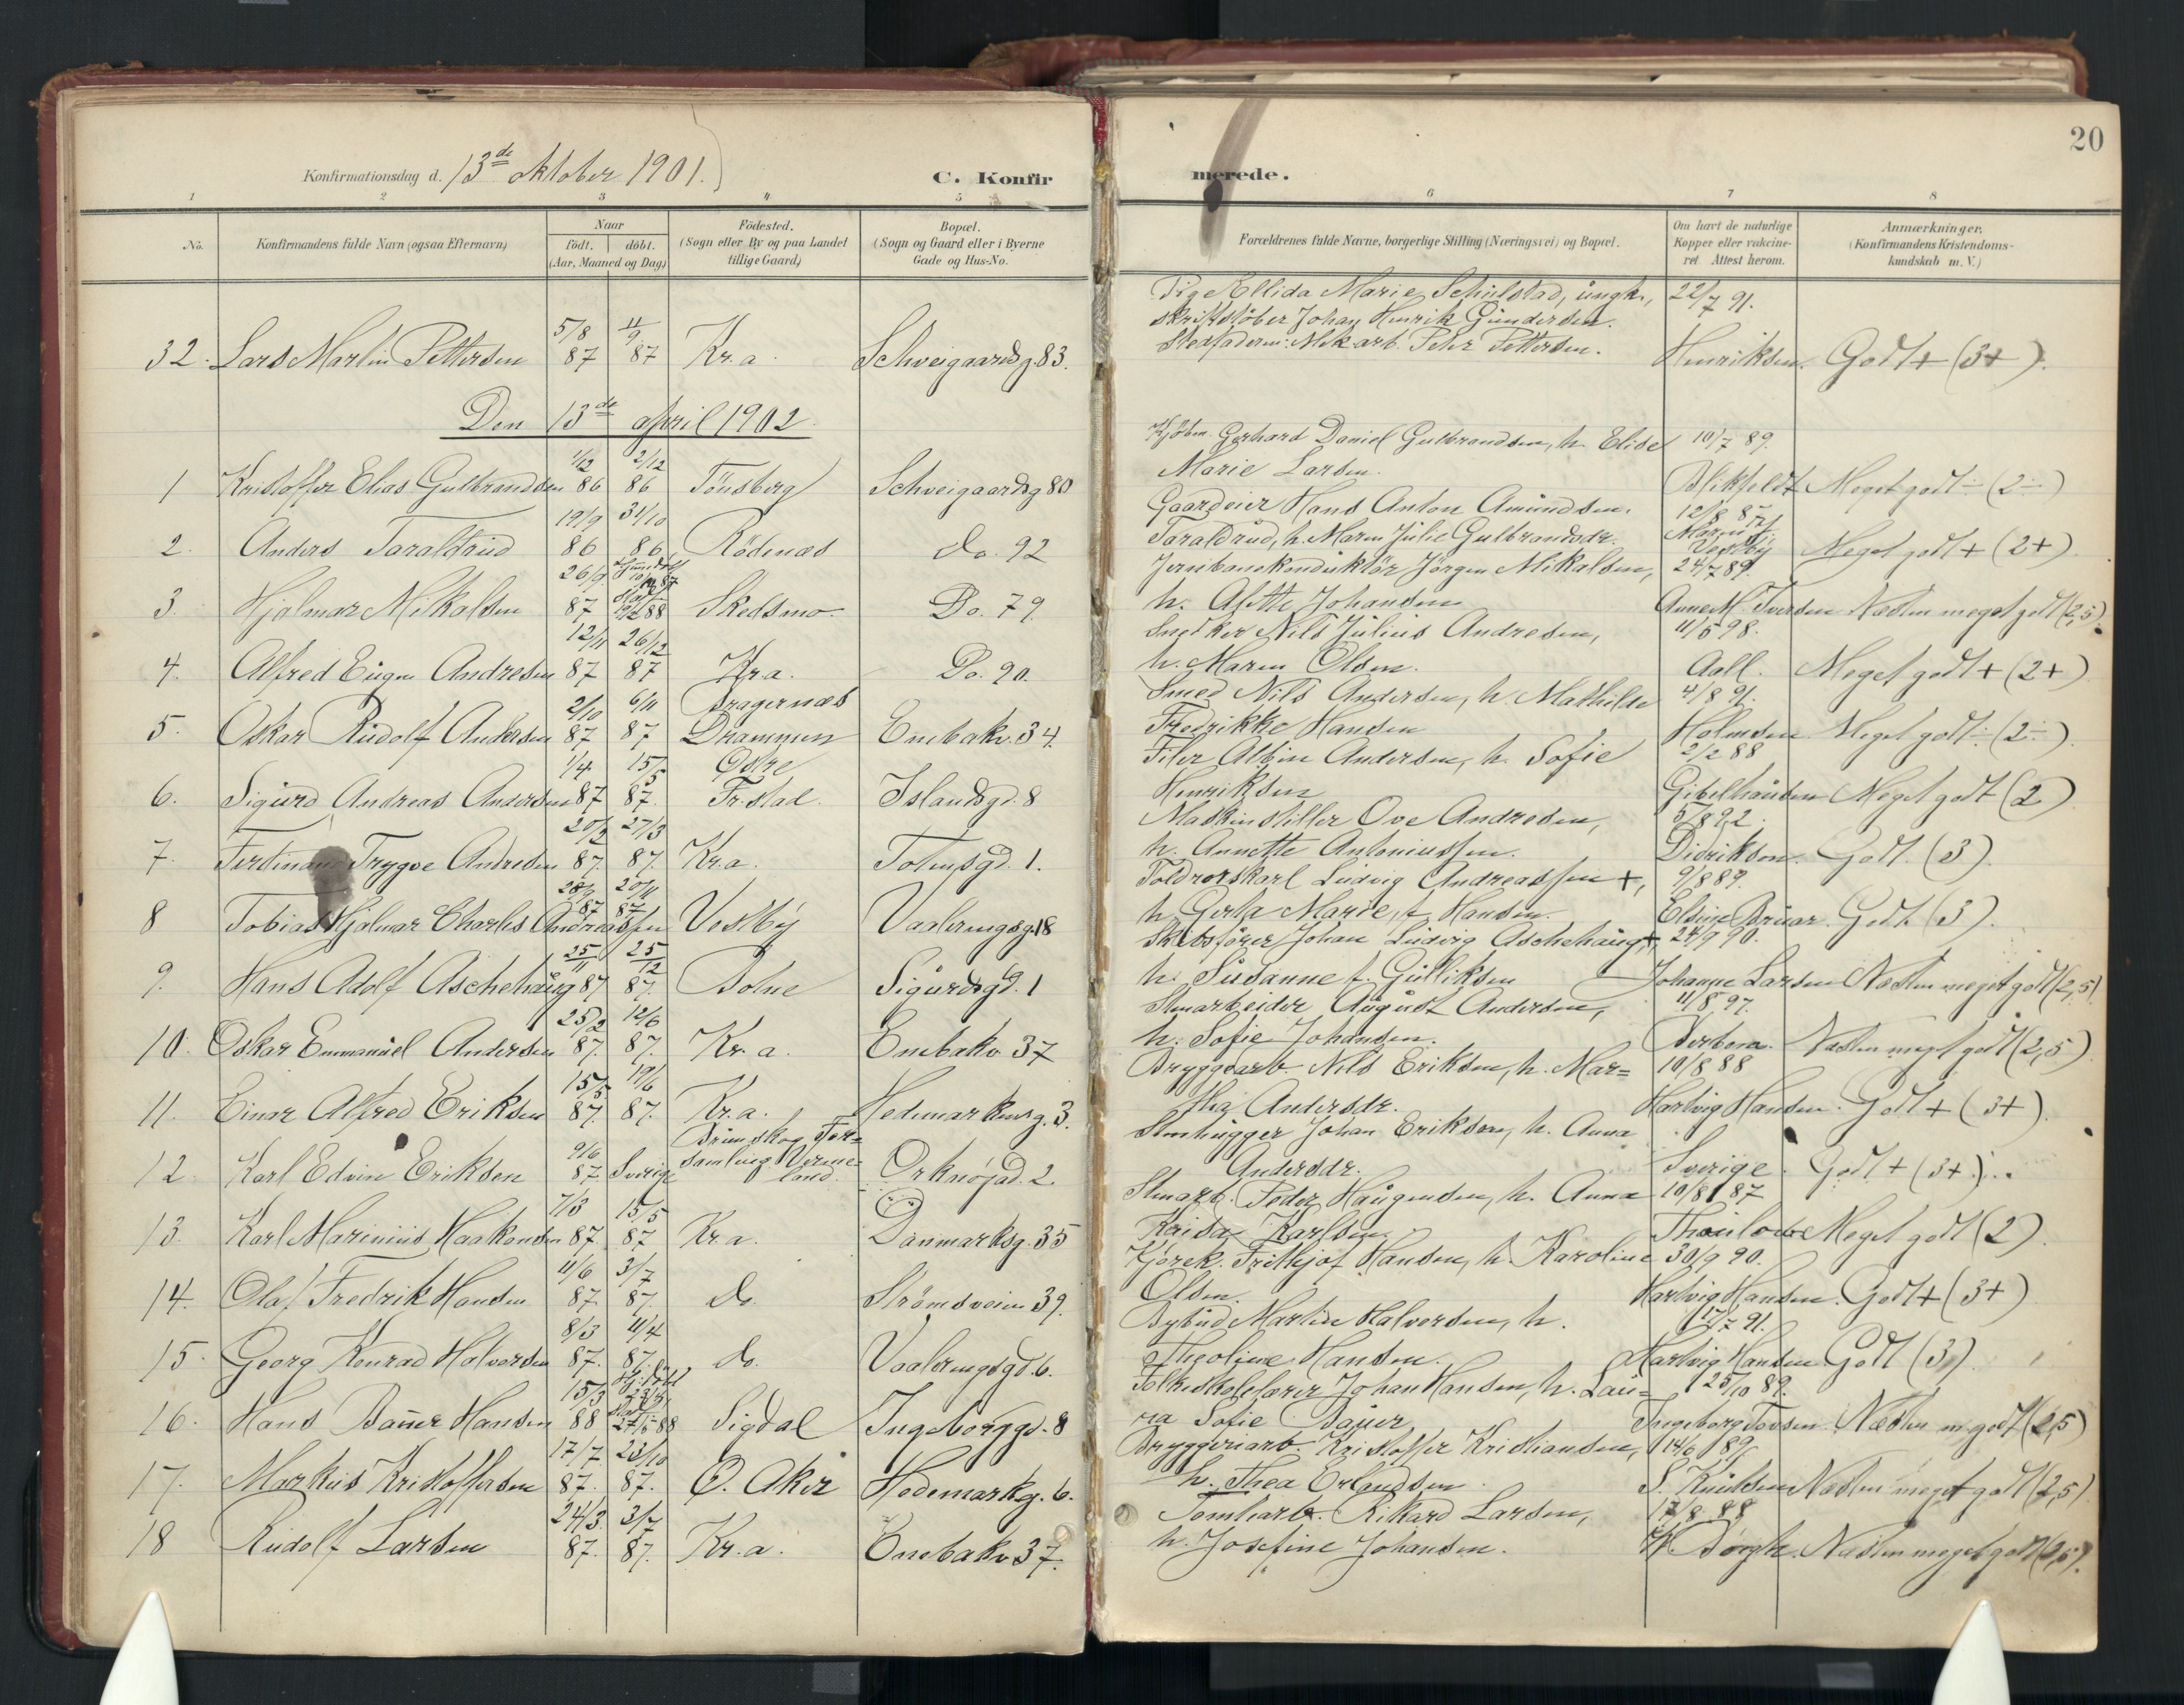 20
Konfirmationsdag d. 13de oktober 1901.
C. Konfirmerede.
1 2 3 4 5 6 7 8
No. Konfirmandens fulde Navn (ogsaa Efternavn) Naar födt. döbt. (Aar, Maaned og Dag) Födested. (Sogn eller By og paa Landet tillige Gaard) Bopæl. (Sogn og Gaard eller i Byerne Gade og Hus-No. Forældrenes fulde Navne, borgerlige Stilling (Næringsvei) og Bopæl. Om havt de naturlige Kopper eller vakcineret. Attest herom. Anmærkninger. (Konfirmandens Kristendomskundskab m. V.)
32. Lars Martin Pettersen 5/8 87 11/9 87 Kr.a. Schweigaardsg. 83.
Pige Ellida Marie Schulstad, ungk., 22/7 91.
skriftstøber Johan Henrik Gundersen.
Stedfaderen: Mek. arb. Petter Pettersen. Henriksen. Godt + (3+).
Den 13de april 1902.
1 Kristoffer Elias Gulbrandsen 1/12 86 2/12 86 Tönsberg Schweigaardsg 80
Kjöbm. Gerhard Daniel Gulbrandsen, h. Elise 10/7 89.
Marie Larsen. Blikfeldt Meget godt ÷ (2÷)
2. Anders Taraldrud 19/9 86 31/10 86 Rödenæs do. 92
Gaardeier Hans Anton Amundsen 12/8 87
Taraldrud, h. Maren Julie Gulbrandsdr. Vestby Meget godt + (2+)
3. Hjalmar Mikalsen 26/9 87 Skedsmo. Do. 79.
Jernbanekonduktör Jörgen Mikalsen, 24/7 89.
h. Alette Johansen Anne M. Iversen Næsten meget godt (2,5)
4. Alfred Eugen Andresen 12/11 87 26/12 87 Kr.a. Do. 90.
Snedker Nils Julius Andresen, 11/5 98.
h. Maren Olsen. Aall. Meget godt + (2+)
5. Oskar Rudolf Andersen 2/10 87 6/11 87 Bragernæs Drammen Enebakv. 34.
Smed Nils Andersen, h. Mathilde 4/8 91.
Fredrikke Hansen Holmsen Meget godt ÷ (2÷).
6. Sigurd Andreas Andersen 1/4 87 15/5 87. Østre Fr.stad. Islandsgd. 8
Filer Albin Andersen, h. Sofie 2/2 88
Henriksen Gibelhausen Meget godt (2)
7. Ferdinand Trygve Andresen 20/2 87. 27/3 87. Kr.a. Tolmsgd. 1.
Maskinstiller Ove Andresen, 5/8 92.
h. Annette Antoniussen. Didriksen. Godt. (3).
8 Tobias Hjalmar Charles Andreassen 87 20/11 87 Vestby Vaalerengsg. 18
Toldrorskarl Ludvig Andreassen +, 9/8 89.
h. Gerta Marie, f. Hansen. Elsine Bruar. Godt. (3).
9. Hans Adolf Aschehaug 25/11 87 25/12 87. Botne Sigurdsgd. 1
Skibsförer Johan Ludvig Aschehaug +, 24/9 90.
h. Susanne f. Gulliksen Johanne Larsen Næsten meget godt (2,5)
10. Oskar Emmanuel Andersen 25/2 87. 12/6 87. Kr.a. Enebakv 37
Stenarbeider August Andersen, 11/8 97.
h. Sofie Johansen. Næsten meget godt (2,5)
11. Einar Alfred Eriksen 15/5 87. 19/6 87. Kr.a. Hedemarkensg. 3.
Bryggearb. Nils Eriksen, h. Mar= 10/8 88
tha Andersdr. Hartvig Hansen. Godt + (3+).
12. Karl Edvin Eriksen 9/6 87. Sverige Brunskog Forsamling Vermeland. Orknøgd. 2.
Stenhugger Johan Eriksen, h. Anna
Andersdr. Sverige. Godt + (3+)..
13. Karl Marinius Haakonsen 7/3 87. 15/5 87 Kr.a. Danmarksg. 35
Stenarb. Peder Haugensen, h. Anna 10/8 87
Kaisa Karlsen. Thaulow Meget godt (2).
14. Olaf Fredrik Hansen 11/6 87. 3/7 87. do. Strömsveien 39.
Kjörek. Frithjof Hansen, h. Karoline 30/9 90.
Olsen. Hartvig Hansen. Godt + (3+)
15. Georg Konrad Halvorsen 8/3 87. 11/4 87. do. Vaalerengsgd. 6.
Bybud Martin Halvorsen, h. 17/7 91.
Theoline Hansen. Hartvig Hansen. Godt (3).
16. Hans Bauer Hansen 15/3 88 Sigdal Ingeborggd. 8
Folkeskolelærer Johan Hansen, h. Lau= 25/10 89.
ra Sofie Bauer Ingeborg Tovsen. Næsten m. godt (2,5)
17. Markus Kristoffersen 17/7 87. 23/10 87. Ø. Aker Hedemarkg. 6.
Bryggeriarb. Kristoffer Kristiansen, 14/6 89.
h. Thea Erlandsen. S. Knudsen Næsten meget godt (2,5)
18 Rudolf Larsen 24/3. 87. 3/7 87. Kr.a. Enebakv 37.
Tomtearb. Rikard Larsen, 17/8 88
h. Josefine Johansen. Næsten meget godt (2,5).